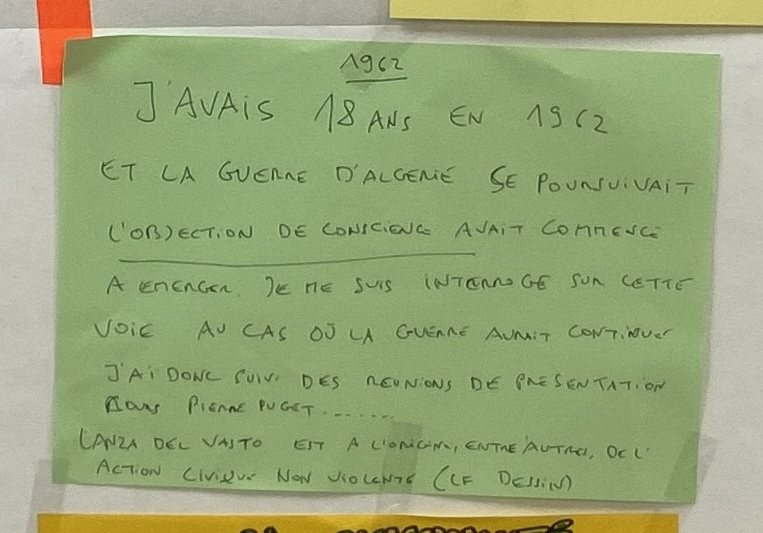 1962
J'AVAIS 18 ANS EN 1962
ET LA GUERRE D'ALGERIE SE POURSUIVAIT
L'OBJECTION DE CONSCIENCE AVAIT COMMENCE
A EMERGER. JE ME SUIS INTERROGE SUR CETTE
VOIE AU CAS OÙ LA GUERRE AURAIT CONTINUER
J'AI DONC SUIVI DES REUNIONS DE PRESENTATION
COURS PIERRE PUGET........
LANZA DEL VASTO EST A L'ORIGINE, ENTRE AUTRES, DE L'
ACTION CIVIQUE NON VIOLENTE (CF DESSIN)